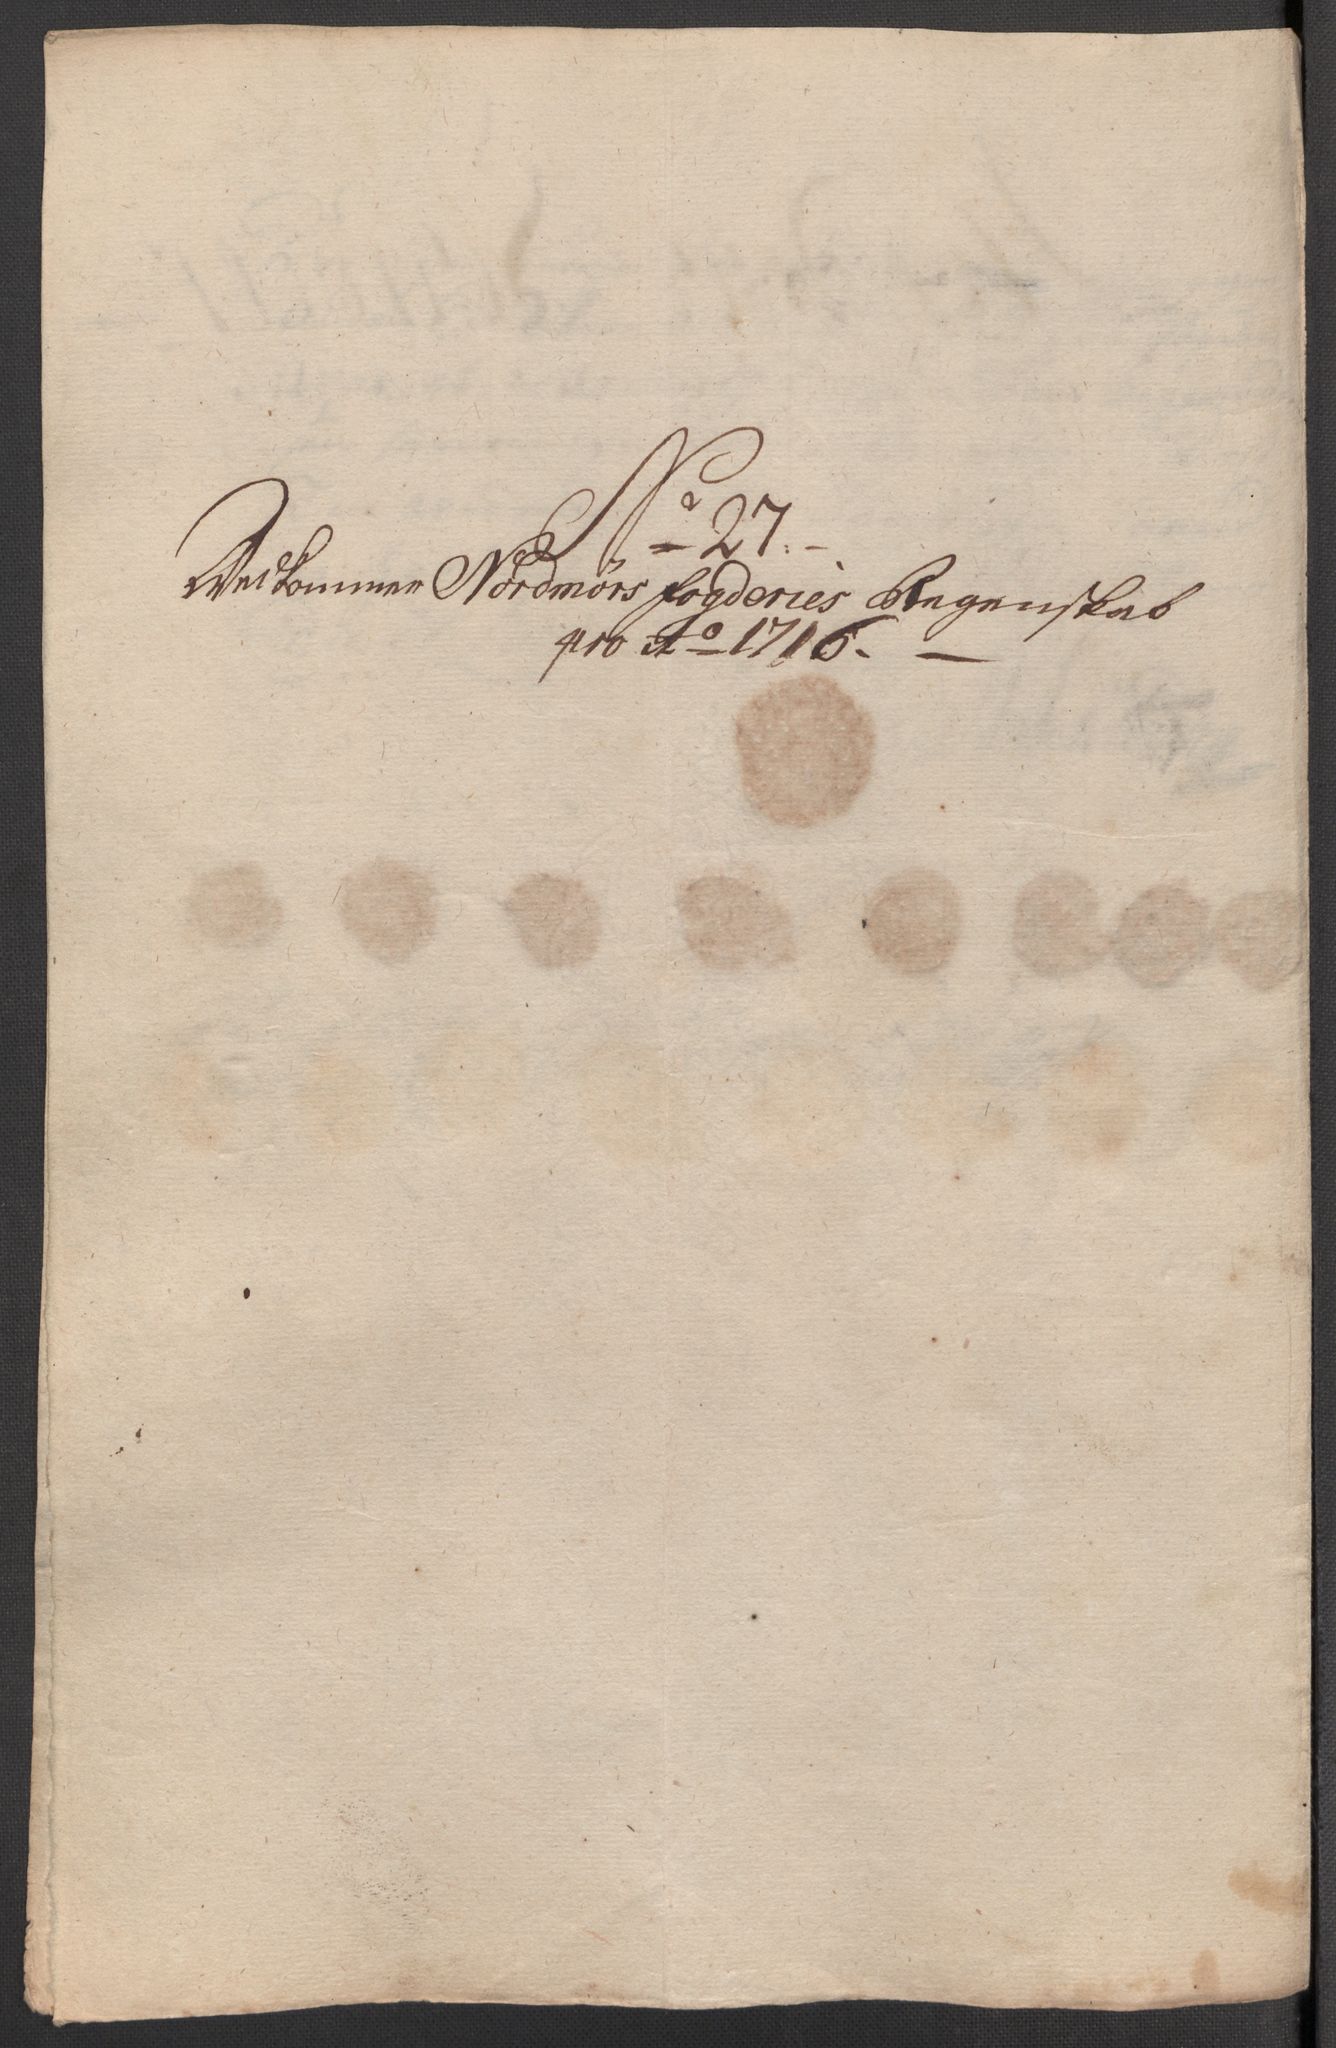 No 27.
Vedkommer Nordmørs fogderies Regenskab
pro Ao 1716.